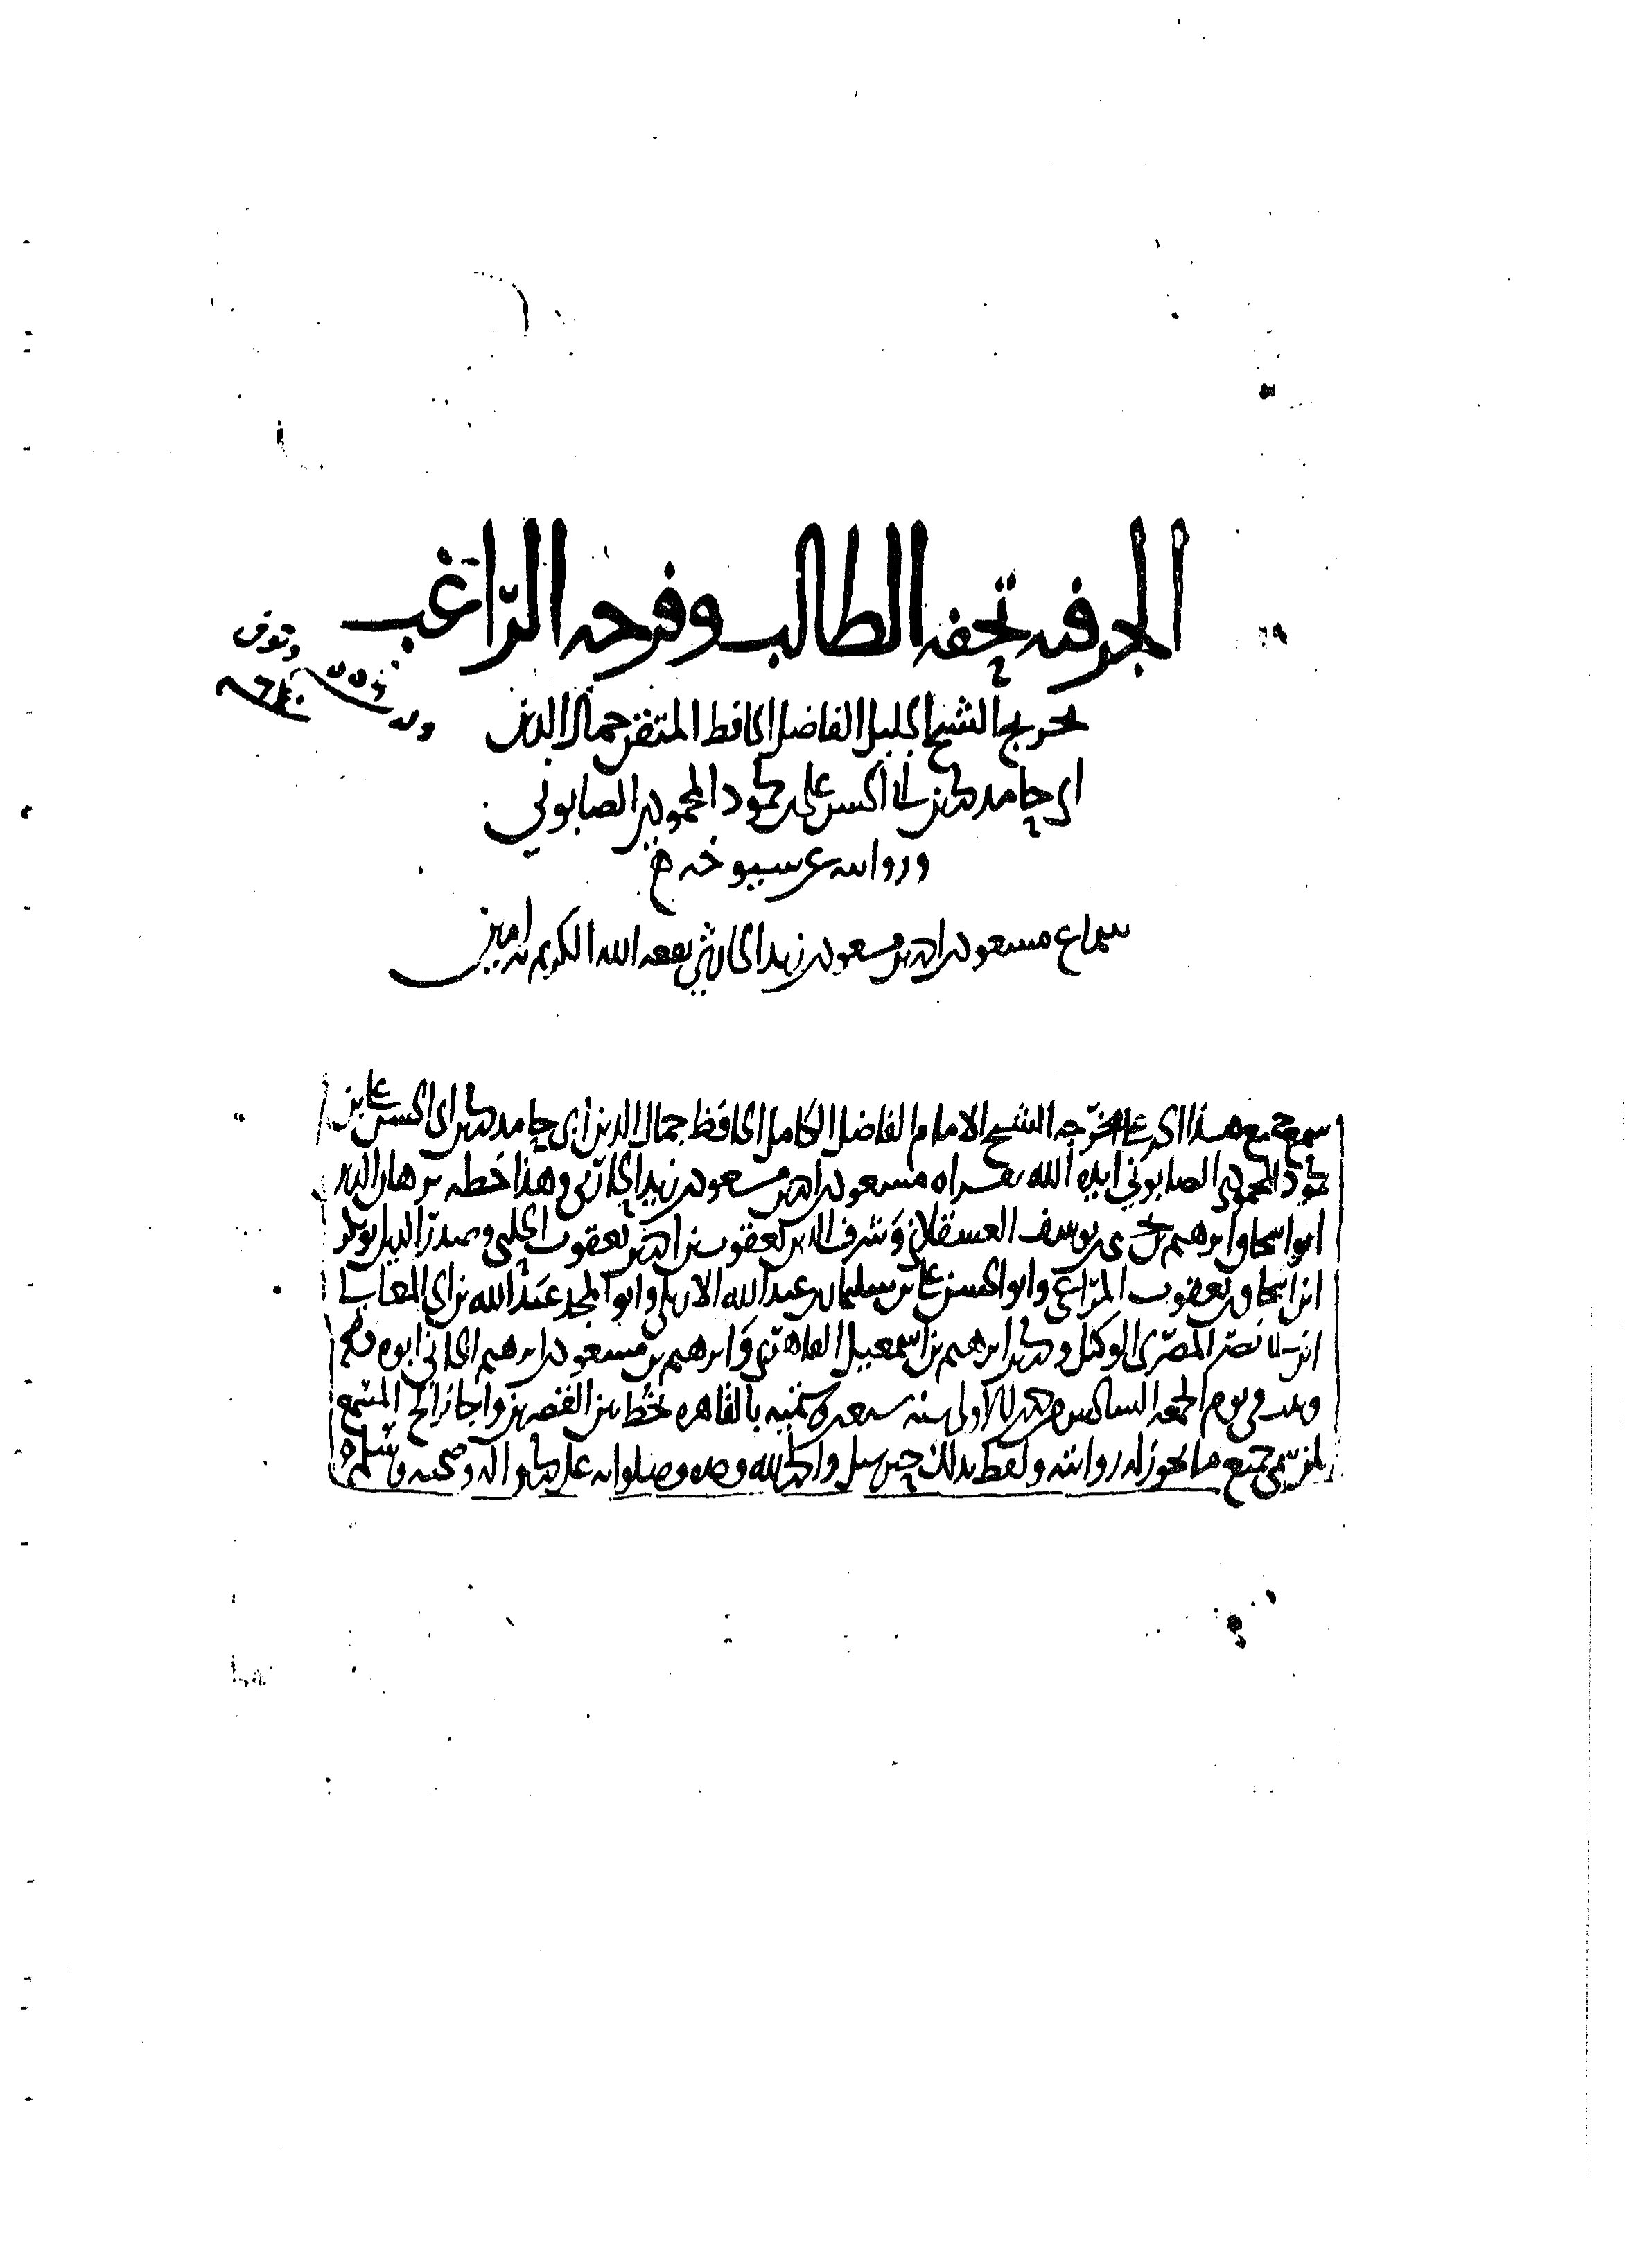 الجز فيه تحفه الطالب وفرحه الراغب
ولد ٥٥٤ وتوفى ٦٤٠
تخريج الشيخ الجليل الفاضل الحافظ المتقن جمال الدين
ابى حامد محمد بن ابى الحسن على بن محمود المحمودى الصابوني
وروايته عن شيوخه
سماع مسعود بن احمد بن مسعود بن زيد الحارثي نفعه الله الكريم به امين
سمع جميع هذا الجز على مخرجه الشيخ الامام الفاضل الكامل الحافظ جمال الدين ابى حامد محمد بن ابى الحسن على بن
محمود المحمودى الصابوني ايده الله بقراه مسعود بن احمد بن مسعود بن زيد الحارثى وهذا خطه برهان الدين
ابو اسحاق ابرهيم بن يحيى بن يوسف العسقلاني وشرف الدين يعقوب بن احمد بن يعقوب الحلبي وصدر الدين ابو بكر
ابن اسحاق بن يعقوب المراغي وابو الحسن على بن سليمان بن عبد الله الاربلى وابو المجد عبد الله بن ابى المعالى
ابن نصر المصرى الوكيل ومحمد بن ابرهيم بن اسمعيل القاهرى وابرهيم بن مسعود بن ابرهيم ابوه
فى يوم الجمعه السادس من جمادى الاولى سنه بالقاهره بخط بين القصرين واجاز المسمع
لمن سمى جميع ما يجوز له روايته ولفظ بذلك حين سيل والحمد لله وحده وصلواته على محمد واله وصحبه وسلامه